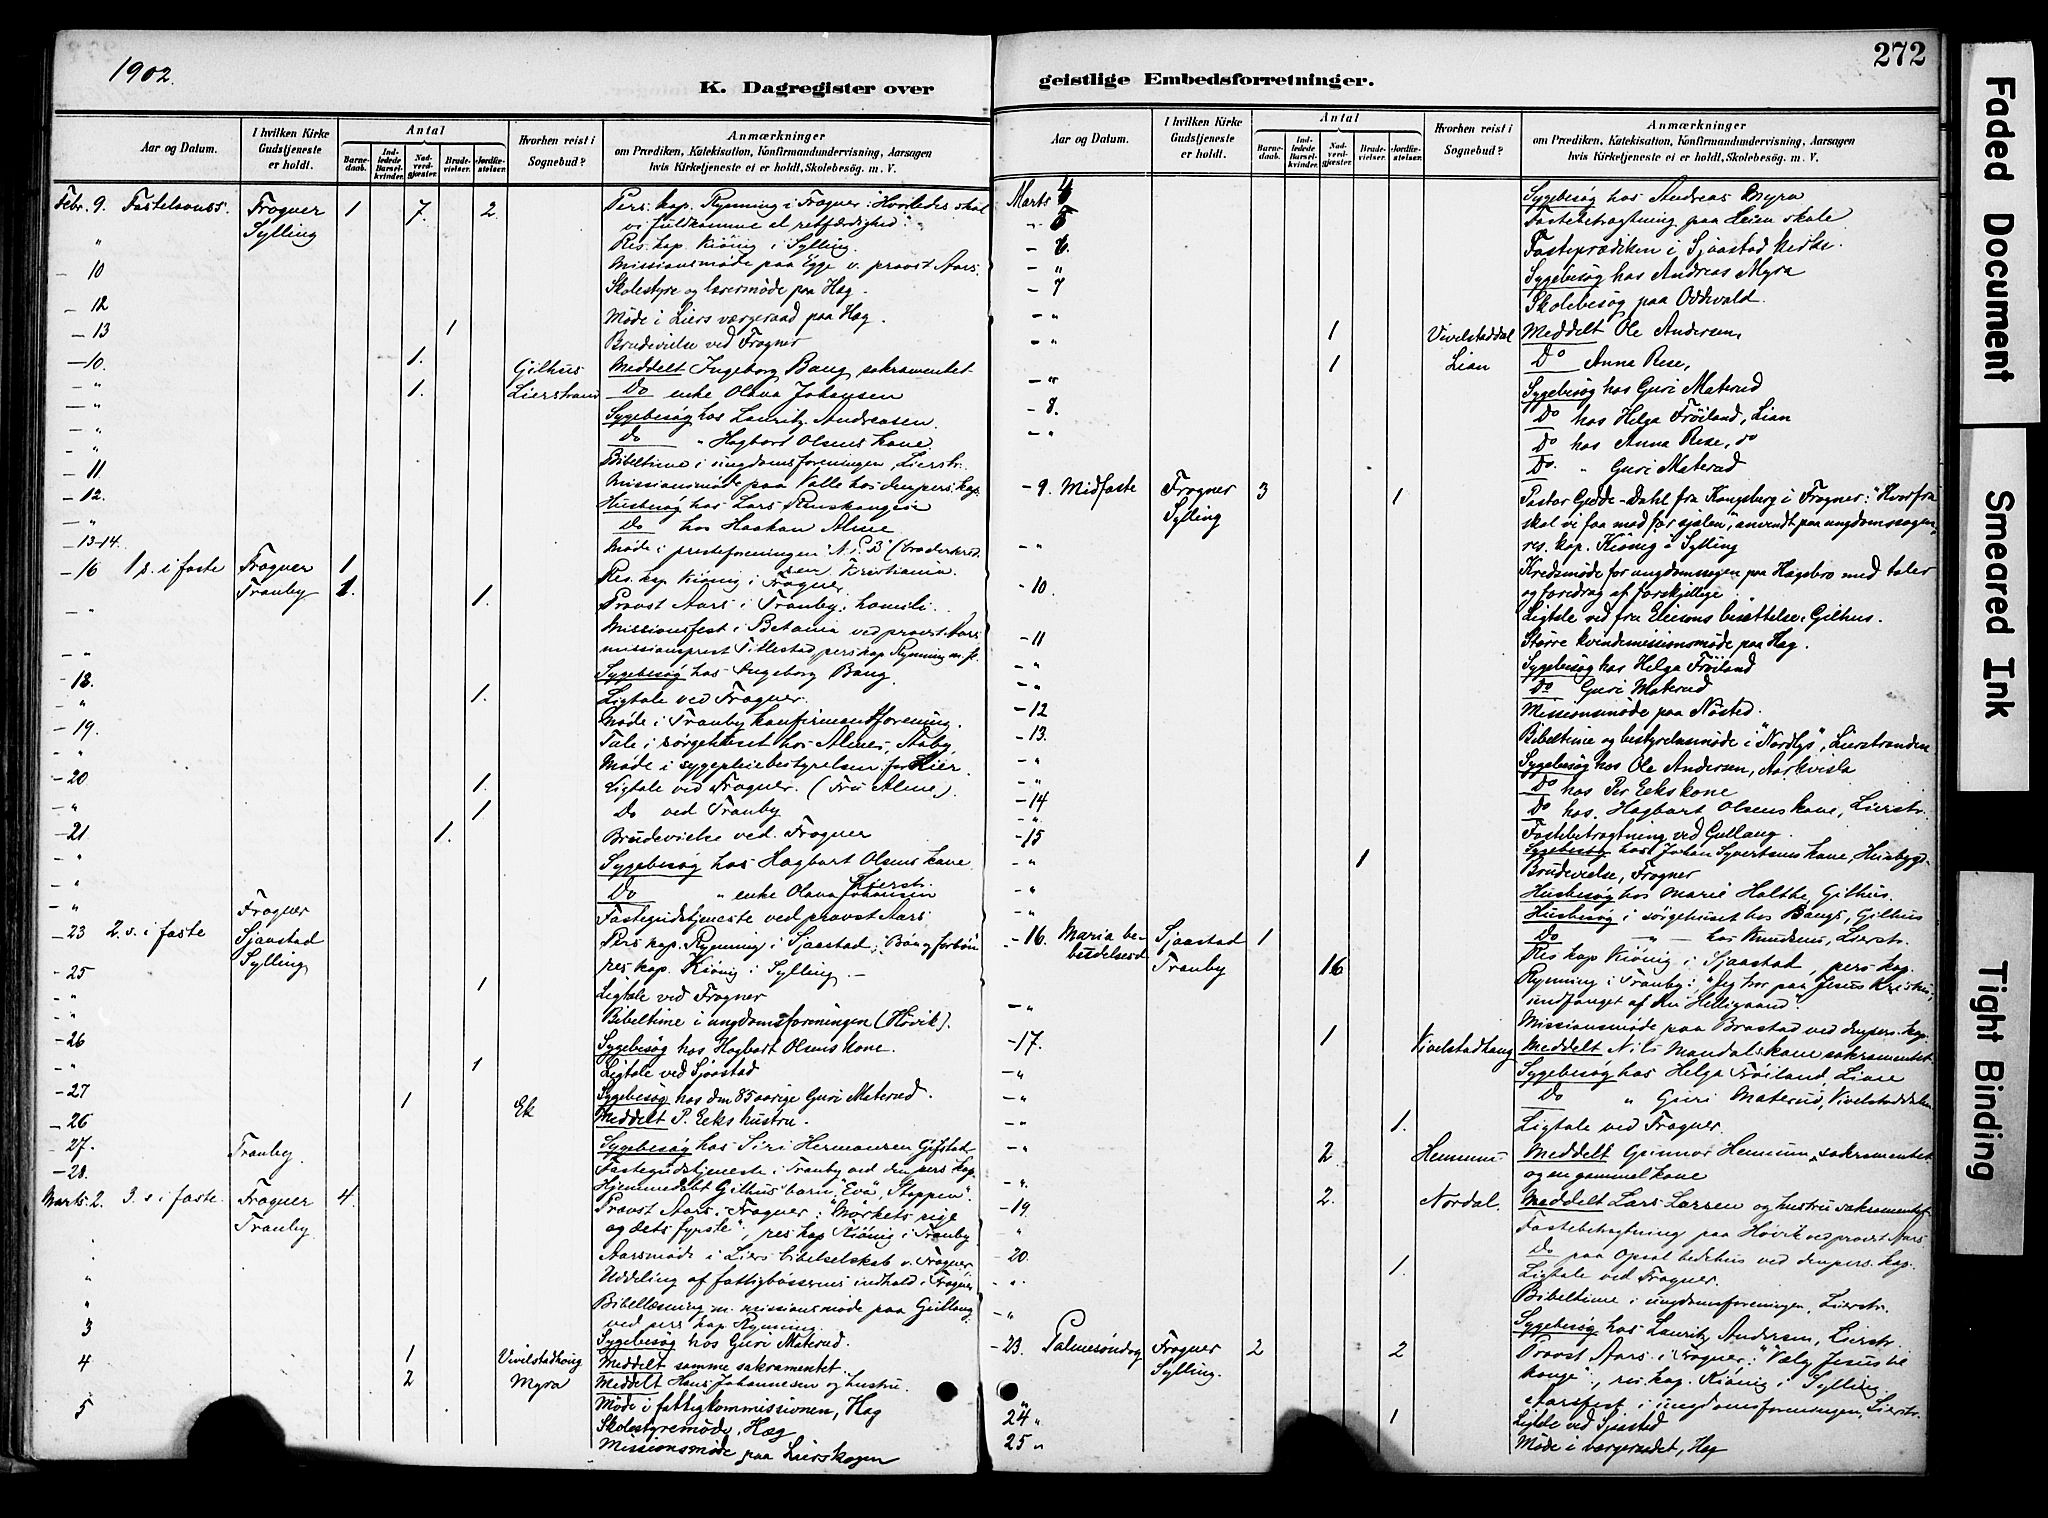 1902.
K. Dagregister over
geistlige Embedsforretninger.
272
Aar og Datum.
I hvilken Kirke Gudstjeneste er holdt.
Antal
Barnedaab.
Indledede Barselkvinder.
Nadverdgjæster.
Brudevielser.
Jordfæstelser.
Hvorhen reist i Sognebud?
Anmærkninger
om Prædiken, Katekisation, Konfirmandundervisning, Aarsagen
hvis Kirketjeneste ei er holdt, Skolebesøg. m. V.
Febr. 9. Fastelavnss. Frogner 1 7. 2. Pers. kap. Rynning i Frogner: Hvorledes skal
Sylling vi fuldkomme al retfærdighed.
" Res. kap. Kiönig i Sylling.
- 10 Missionsmøde paa Egge v. provst Aars.
Skolestyre og lærermøde paa Hag.
- 12 Møde i Liers værgeraad paa Hag.
- 13 1 Brudevielse ved Frogner
- 10. 1. Gilhus Meddelt Ingeborg Bang sakramentet
- " 1. Lierstrand Do enke Olava Johansen
- " Sygebesøg hos Lauritz Andreasen.
- " Do " Hagbart Olsens kone
- 11 Bibeltime i ungdomsforeningen, Lierstr.
- 12. Missionsmøde paa Valle hos den pers. kap.
Husbesøg hos Lars
- " Do hos Haakan Alme.
- 13-14. Møde i presteforeningen
- 16 1 s. i faste Frogner 1 Res. kap. Kiönig i Frogner
Tranby 1. 1. Provst Aars i Tranby:
- " Missionsfest i Betania ved provst Aars
- " missionsprest Tillestad, pers kap Rynning m. fl.
- 18. Sygebesøg hos Ingeborg Bang.
- " 1. Ligtale ved Frogner.
- 19. Møde i Tranby konfirmandforening.
- " Tale i sørgehuset hos Almes,
Møde i sygepleiebestyrelsen for Lier.
- 20 1. Ligtale ved Frogner. (Fru Alme).
- " 1 Do ved Tranby
- 21 1. Brudevielse ved Frogner
- " Sygebesøg hos Hagbart Olsens kone
- " Do " enke Olava Johansen Lierstr.
- " Frogner Fastegudstjeneste ved provst Aars
- 23 2. s. i faste Sjaastad Pers. kap. Rynning i Sjaastad: "Bön og forbön
Sylling res kap. Kiönig i Sylling. -
- 25 1 Ligtale ved Frogner
- " Bibeltime i ungdomsforeningen (Høvik).
- 26 Sygebesøg hos Hagbart Olsens kone.
- " 1 Ligtale ved Sjaastad
- 27 Sygebesøg hos den 85 aarige Guri Materud.
- 26 1 Ek Meddelt P. Eeks hustru.
- 27. Sygebesøg hos Siri Hermansen
- 28. Tranby. Fastegudstjeneste i Tranby ved den pers kap
Hjemmedøbt Gilhus' barn, "Eva", Stoppen".
Marts 2. 3. s i faste Frogner 4. Provst Aars i Frogner: "Mørkets rige
Tranby og dets fyrste", res kap Kiönig i Tranby
Aarsmøde i Liers bibelselskab v. Frogner,
" Uddeling af fattigbøssernes indhold i Frogner
" Bibellæsning m. missionsmøde paa Gullaug
ved pers kap Rynning.
3 Sygebesøg hos Guri Materud.
4 1 Vivelstadhoug Meddelt samme sakramentet.
2 Myra Meddelt Hans Johannesen og hustru.
5 Møde i fattigkommissionen, Hag
Skolestyremøde, Hæg
Missionsmøde paa Lierskogen
Aar og Datum.
I hvilken Kirke Gudstjeneste er holdt.
Antal
Barnedaab.
Indledede Barselkvinder.
Nadverdgjæster.
Brudevielser.
Jordfæstelser.
Hvorhen reist i Sognebud?
Anmærkninger
om Prædiken, Katekisation, Konfirmandundervisning, Aarsagen
hvis Kirketjeneste ei er holdt, Skolebesøg. m. V.
Marts 4 Sygebesøg hos Andreas Myra
" 5 Fastebetragtning paa Heien skole
- 6. Fasteprædiken i Sjaastad kirke.
- " Sygebesøg hos Andreas Myra
- 7 Skolebesøg paa Oddevald.
- " 1 Vivelstaddal Meddelt Ole Andersen,
" 1 Lian Do Anna Rese,
- " Sygebesøg hos Guri Materud
- 8. Do hos Helga Fröiland, Lian
- " Do hos Anna Rese, do
Do. " Guri Materud
- 9. Midfaste Frogner 3 1 Pastor Gedde-Dahl fra Kongsberg i Frogner: "Hvorfra
Sylling skal vi faa mad for sjælen", anvendt paa ungdomssagen,
- " res. kap. Kiönig i Sylling
Kredsmøde for ungdomssagen paa Hagebro med taler
- 10. og foredrag af forskjellige.
Ligtale ved fru Eliesons bisættelse, Gilhus.
- 11 Større kvindemissionsmøde paa Hag.
- " Sygebesøg hos Helga Fröiland
- " Do Guri Materud
- 12 Missionsmøde paa Nøsted.
- 13. Bibeltime og bestyrelsesmøde i "Nordlys", Lierstranden
- " Sygebesøg hos Ole Andersen,
- " Do hos Per Eeks kone
- 14 Do hos. Hagbart Olsens kone, Lierstr.
- " Fastebetragtning ved Gullaug.
- 15 Sygebesøg hos Johan Syvertsens kone, Husbygd.
- " 1 Brudevielse, Frogner
- " Husbesøg hos Marie Holthe, Gilhus.
- " Husbesøg i sørgehuset hos Bangs, Gilhus
Do " - hos Knudsens, Lierstr.
- 16. Maria bebudelsesd Sjaastad 1 Res kap Kiönig i Sjaastad, pers kap.
Tranby 16 Rynning i Tranby: "Jeg tror paa Jesus Kristus,
- " undfanget af den Helligaand".
Missionsmøde paa Brastad ved den pers. kap.
- 17. 1 Vivelstadhaug Meddelt Nils Mandals kone sakramentet
- " Sygebesøg hos Helga Fröiland, Liane
- " Do " Guri Materud, Vivelstaddalen
- " 1. Ligtale ved Frogner.
- " 2. Hennum Meddelt Gunnar Hennum sakramentet
- " og en gammel kone
- 19. 2. Nordal. Meddelt Lars Larsen og hustru sakramentet
" Fastebetragtning paa Høvik ved provst Aars.
- 20. Do paa Opsal bedehus ved den pers. kap.
- " 1. Ligtale ved Frogner.
- " Bibeltime i ungdomsforeningen, Lierstr.
Sygebesøg hos Lauritz Andersen, Lierstr.
- 23. Palmesøndag Frogner 2 2 Provst Aars i Frogner: "Vælg Jesus til
Sylling. konge", res. kap. Kiönig i Sylling.
" Aarsfest i ungdomsforeningen, Lierstr.
24 " 1 Ligtale ved Sjaastad
25 " Møde i værgeraadet, Heg
Faded Document
Smeared Ink
Tight Binding